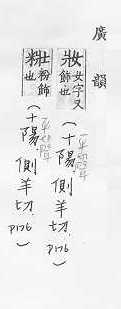 廣韻
妝 女字又飾也 (十陽.側羊切.P176)
粧 粉飾也 (十陽.側羊切.P176)